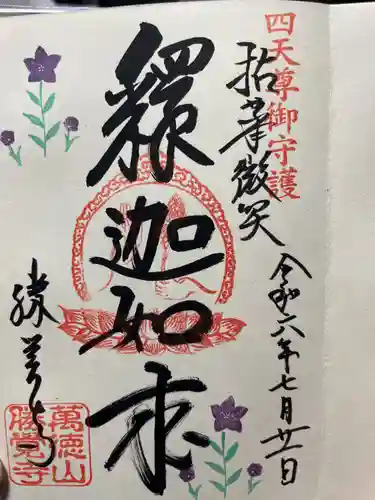 四天尊御守護
拈華微笑
令和六年七月廿一日
釋迦如来
勝覚寺
萬徳山
勝覚寺